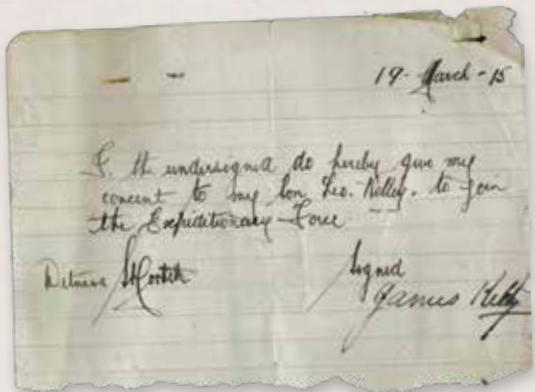 19 - March - 15
I the undersigned do hereby give my
concent to my Son Leo. Kelley. to join
the Expeditionary Force
Witness
Signed
James Kelly